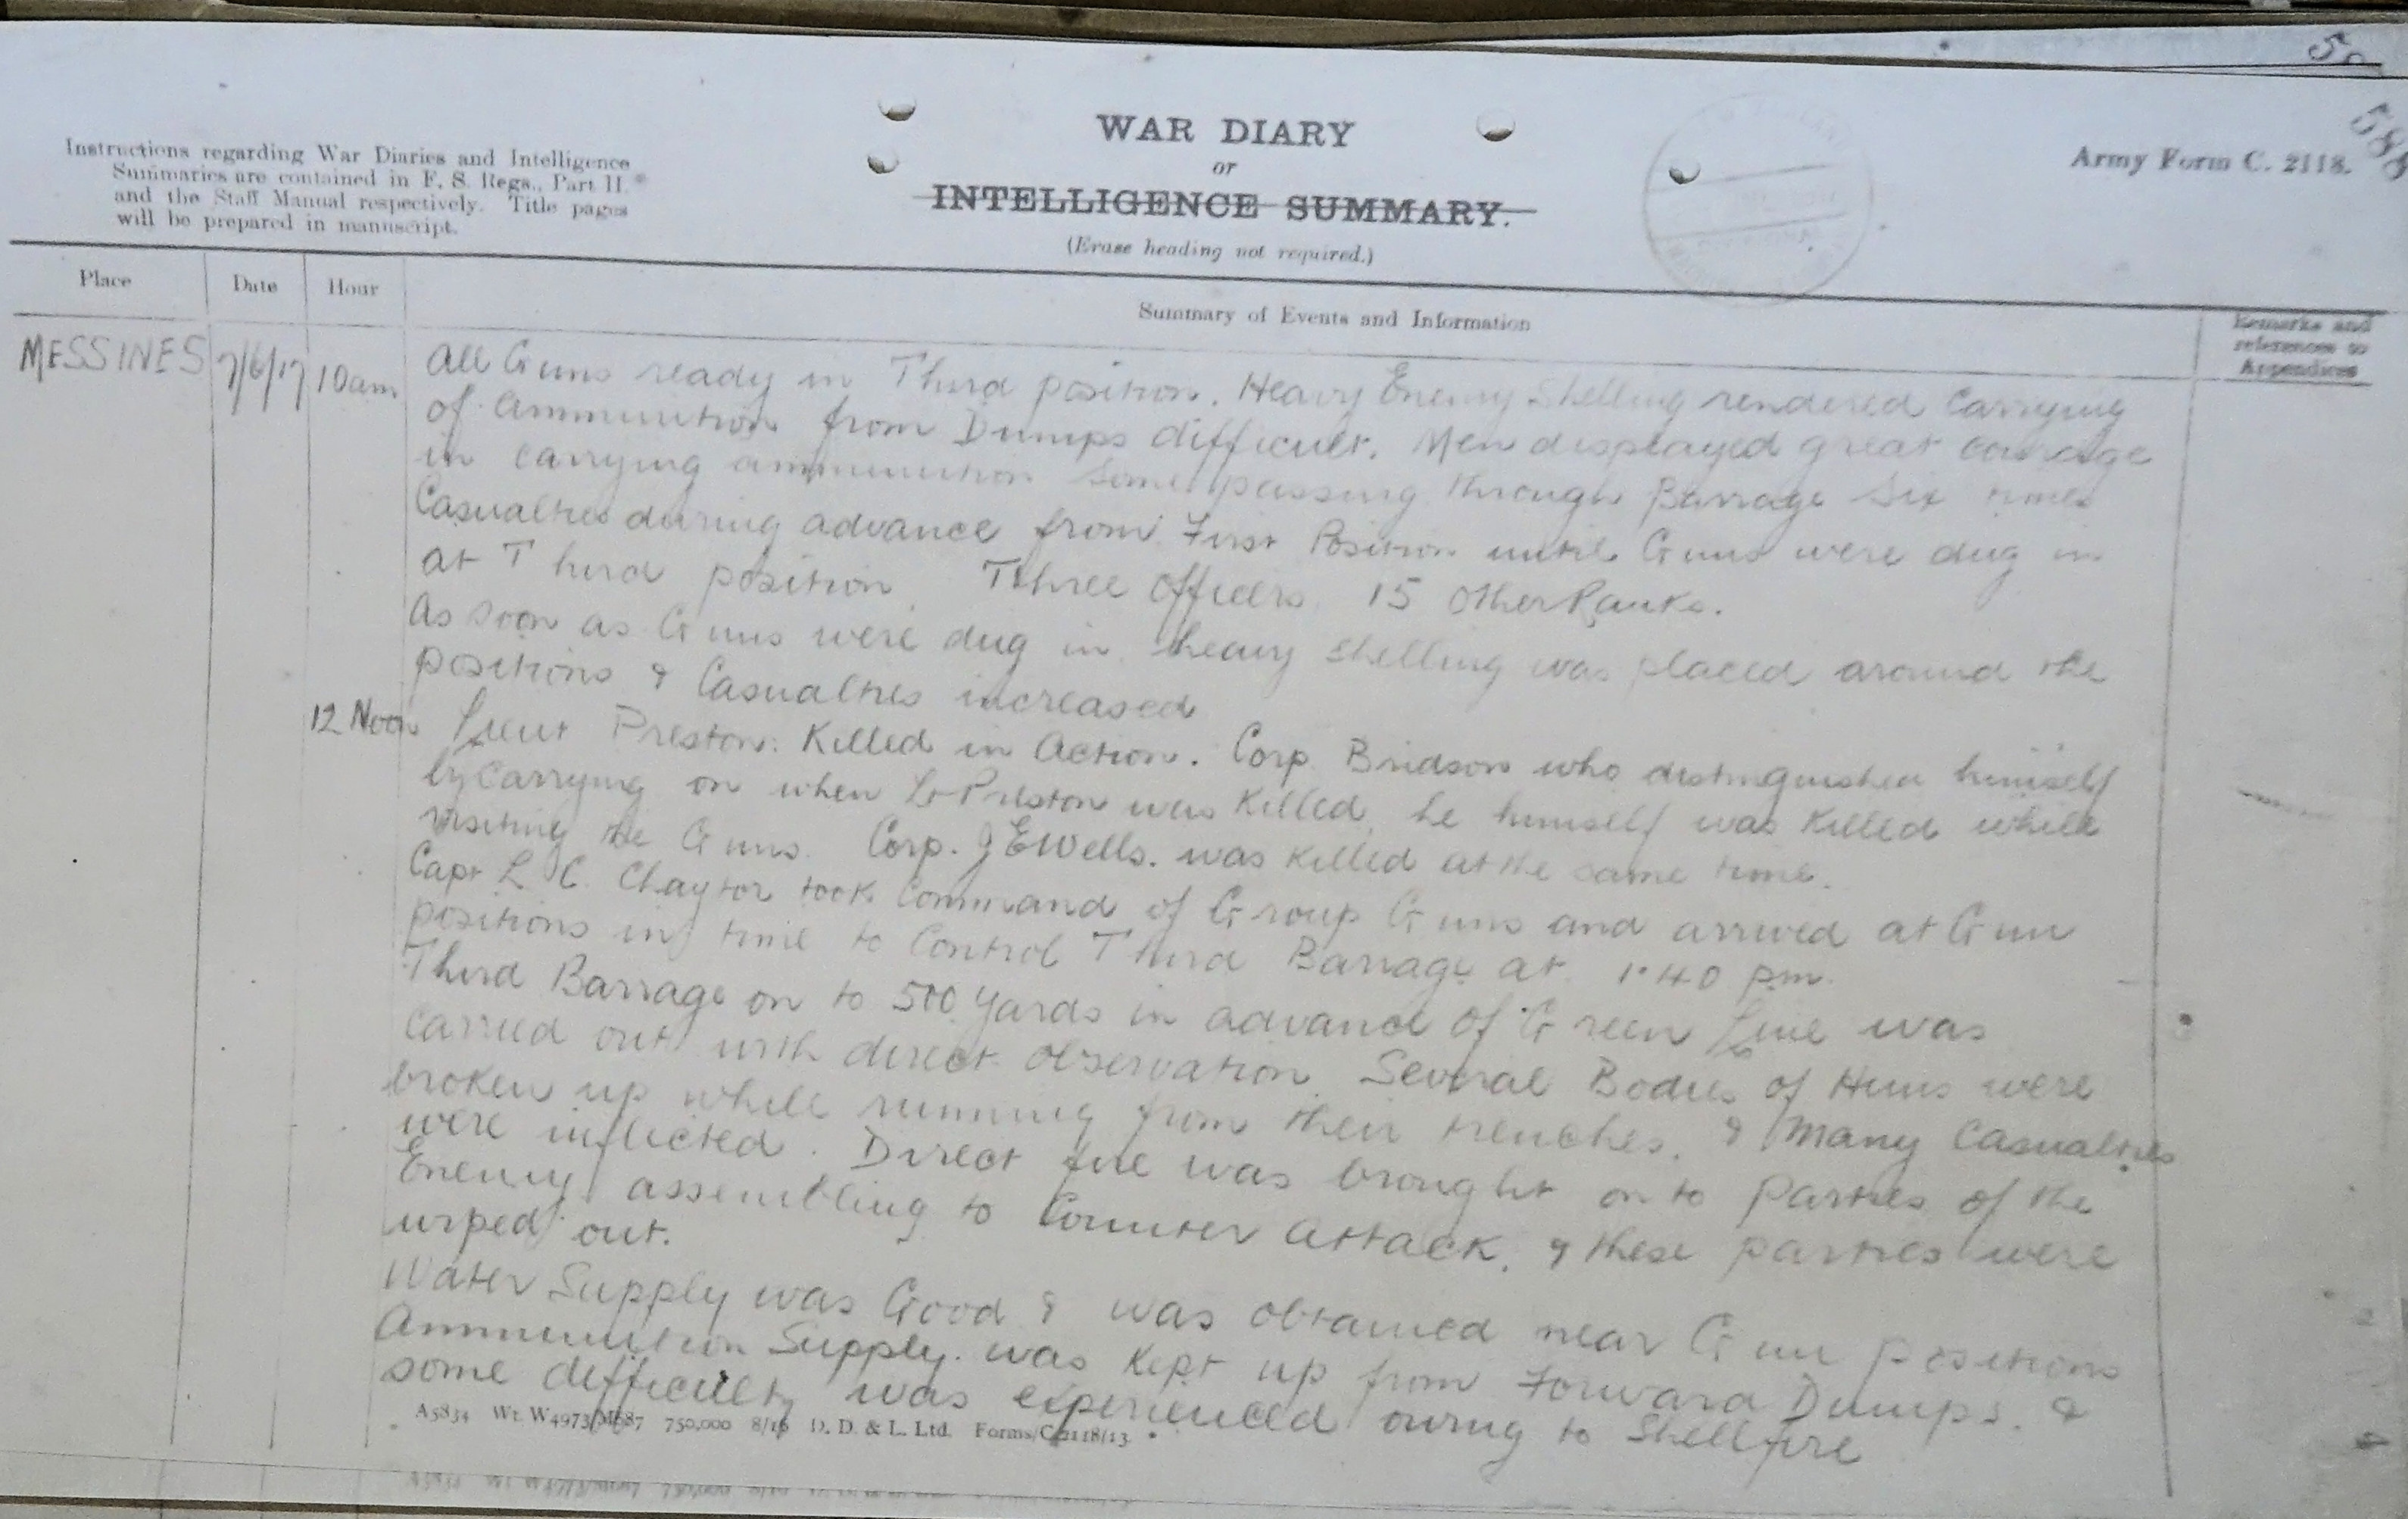 588
WAR DIARY
or
INTELLIGENCE SUMMARY.
(Erase heading not required.)
Instructions regarding War Diaries and Intelligence
Summaries are contained in F. S. Regs., Part II.
and the Staff Manual respectively. Title pages
will be prepared in manuscript.
Army Form C. 2118.
Place Date Hour Summary of Events and Information Remarks and
references to
Appendices
MESSINES 7/6/17 10am All Guns ready in Third position. Heavy Enemy Shelling rendered carrying
of Ammunition from Dumps difficult. Men displayed great courage
in carrying ammunition some passing through Barrage six times
Casualties during advance from First Position until Guns were dug in
at Third position. Three Officers. 15 Other Ranks.
As soon as Guns were dug in heavy shelling was placed around the
positions & Casualties increased
12 Noon Lieut Preston. Killed in Action. Corp. Bridson who distinguished himself
by carrying on when Lt Preston was Killed, he himself was Killed while
visiting the Guns. Corp. J E Wells. was killed at the same time.
Capt L. C. Chaytor took Command of Group Guns and arrived at Gun
positions in time to Control Third Barrage at 1.40 pm.
Third Barrage on to 500 Yards in advance of Green Line was
carried out with direct observation. Several Bodies of Huns were
broken up while running from their trenches. & Many Casualties
were inflicted. Direct fire was brought on to Parties of the
Enemy assembling to Counter Attack. & these parties were
wiped out.
Water Supply was Good & was obtained near Gun positions
Ammunition Supply. was Kept up from Forward Dumps. &
some difficulty was experienced owing to Shellfire
A5834 Wt. W4973/M687 750,000 8/16 D. D. & L. Ltd. Forms/C.2118/13.